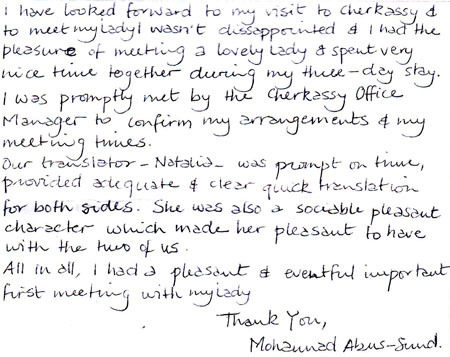 I have looked forward to my visit to Cherkassy &
to meet my lady I wasn't dissappointed & I had the
pleasure of meeting a lovely lady & spent very
nice time together during my three-day stay.
I was promptly met by the Cherkassy Office
Manager to confirm my arrangements & my
meeting times.
Our translator - Natalia - was prompt on time,
provided adequate & clear quick translation
for both sides. She was also a sociable pleasant
character which made her pleasant to have
with the two of us.
All in all, I had a pleasant & eventful important
first meeting with my lady
Thank You,
Mohannad